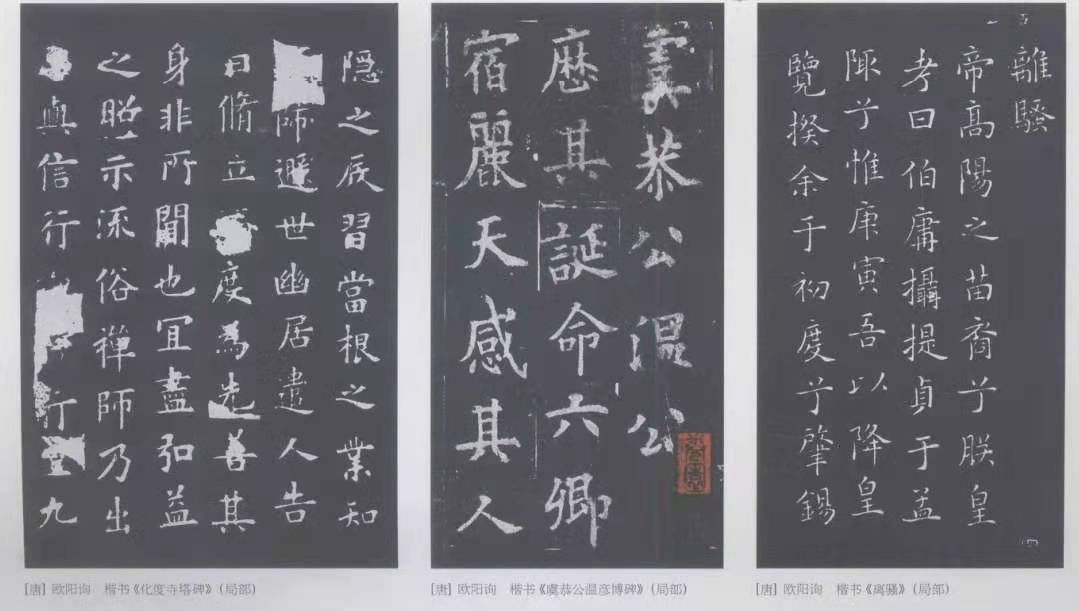 隱之辰習當根之業知
師遯世幽居遣人告
曰脩立度為先善其
身非所聞也宜盡弘益
之昭示流俗禪師乃出
與信行行九
虞恭公温公
厯其誕命六卿
宿麗天感其人
離騷
帝高陽之苗裔兮朕皇
考曰伯庸攝提貞于孟
陬兮惟庚寅吾以降皇
覽揆余于初度兮肇錫
[唐] 欧阳询 楷书《化度寺塔碑》(局部)
[唐] 欧阳询 楷书《虞恭公温彦博碑》(局部)
[唐] 欧阳询 楷书《离骚》(局部)